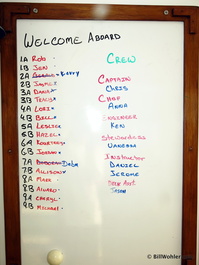 WELCOME ABOARD
1A Rob
1B JEN
2A Kerry
2B JAMES
3A DANA
3B TRACY
4A LORI
4B BILL
5A LESLIE
5B HAZEL
6A KOURTNEY
6B JORDAN
7A Debs
7B ALLISON
8A MARK
8B
9A CHERYL
9B MICHAEL
CREW
CAPTAIN
CHRIS
CHEF
ANNA
ENGINEER
KEN
STEWARDESS
VANESSA
INSTRUCTOR
DANIEL
JEROME
JASON
© BillWohler.com